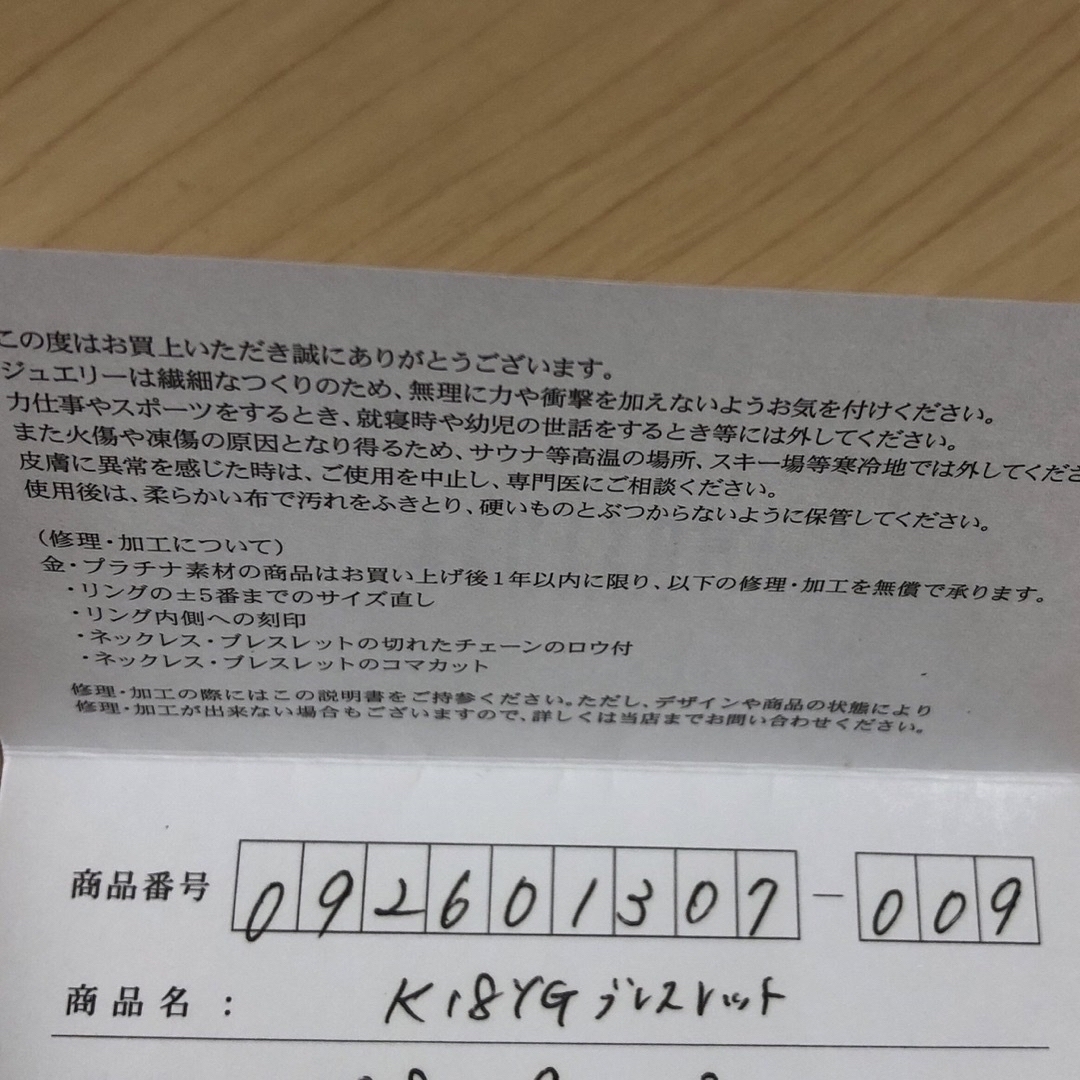 この度はお買上いただき誠にありがとうございます。
ジュエリーは繊細なつくりのため、無理に力や衝撃を加えないようお気を付けください。
力仕事やスポーツをするとき、就寝時や幼児の世話をするとき等には外してください。
また火傷や凍傷の原因となり得るため、サウナ等高温の場所、スキー場等寒冷地では外してくださ
皮膚に異常を感じた時は、ご使用を中止し、専門医にご相談ください。
使用後は、柔らかい布で汚れをふきとり、硬いものとぶつからないように保管してください。
（修理・加工について）
金・プラチナ素材の商品はお買い上げ後1年以内に限り、以下の修理・加工を無償で承ります。
・リングの±5番までのサイズ直し
・リング内側への刻印
・ネックレス・ブレスレットの切れたチェーンのロウ付
・ネックレス・ブレスレットのコマカット
修理・加工の際にはこの説明書をご持参ください。ただし、デザインや商品の状態により
修理・加工が出来ない場合もございますので、詳しくは当店までお問い合わせください。
商品番号 092601307-009
商品名： K18YGブレスレット